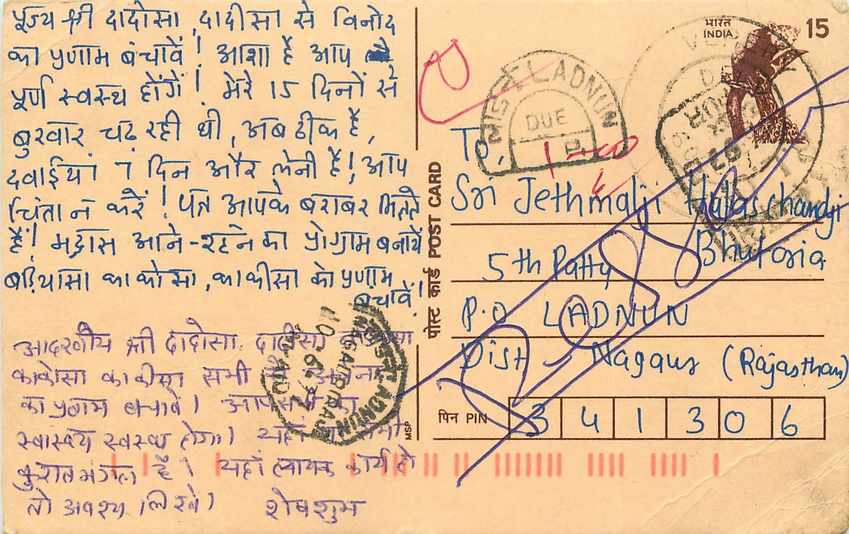 पूज्य श्री दादोसा, दादीसा से विनोद
का प्रणाम बंचावें! आशा है आप
पूर्ण स्वस्थ होंगें! मेरे 15 दिनों से
बुरवार चढ रही थी, अब ठीक है,
दवाईयां 7 दिन और लेनी है! आप
चिंता न करें! पत्र आपके बराबर मिलते
हैं! मद्रास आने-रहने का प्रोग्राम बनावें
बड़ियासा काकोसा, काकीसा को प्रणाम
बंचावें!
आदरणीय श्री दादोसा, दादीसा
काकोसा काकीसा सभी
का प्रणाम बंचावें।
स्वास्थ्य स्वस्थ होगा। यहां
कुशल मंगल है। यहां लायक कार्य हो
तो अवश्य लिखें। शेष शुभ
भारत
INDIA
15
LADNUN
DUE
To,
Sri Jethmalji Hulaschandji
Bhutoria
5th Patty
P.O. LADNUN
Dist - Nagaur (Rajasthan)
पिन PIN 3 4 1 3 0 6
पोस्ट कार्ड POST CARD
MSP
LADNUN